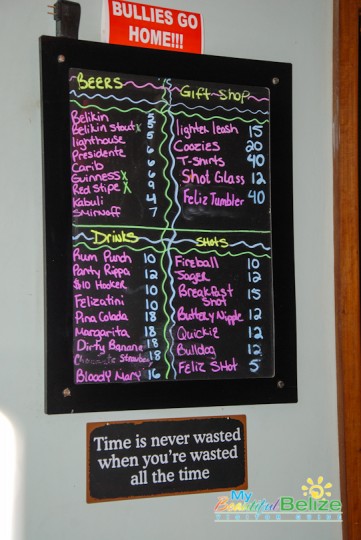 BULLIES GO
HOME!!!
BEERS
Belikin 5
Belikin Stout x 5
lighthouse 5
Presidente 6
Carib 6
Guinness x 6
Red Stipe x 9
Kabuli 4
Smirnoff 7
Gift Shop
lighter leash 15
Coozies 20
T-shirts 40
Shot Glass 12
Feliz Tumbler 40
Drinks
Rum Punch 10
Panty Rippa 12
$10 Hooker 10
Felizatini 10
Pina Colada 18
Margarita 18
Dirty Banana 18
Strawberry 18
Bloody Mary 16
SHOTS
Fireball 10
Jager 12
Breakfast 15
Shot
Buttery Nipple 12
Quickie 12
Bulldog 12
Feliz Shot 5
Time is never wasted
when you're wasted
all the time
My
Beautiful Belize